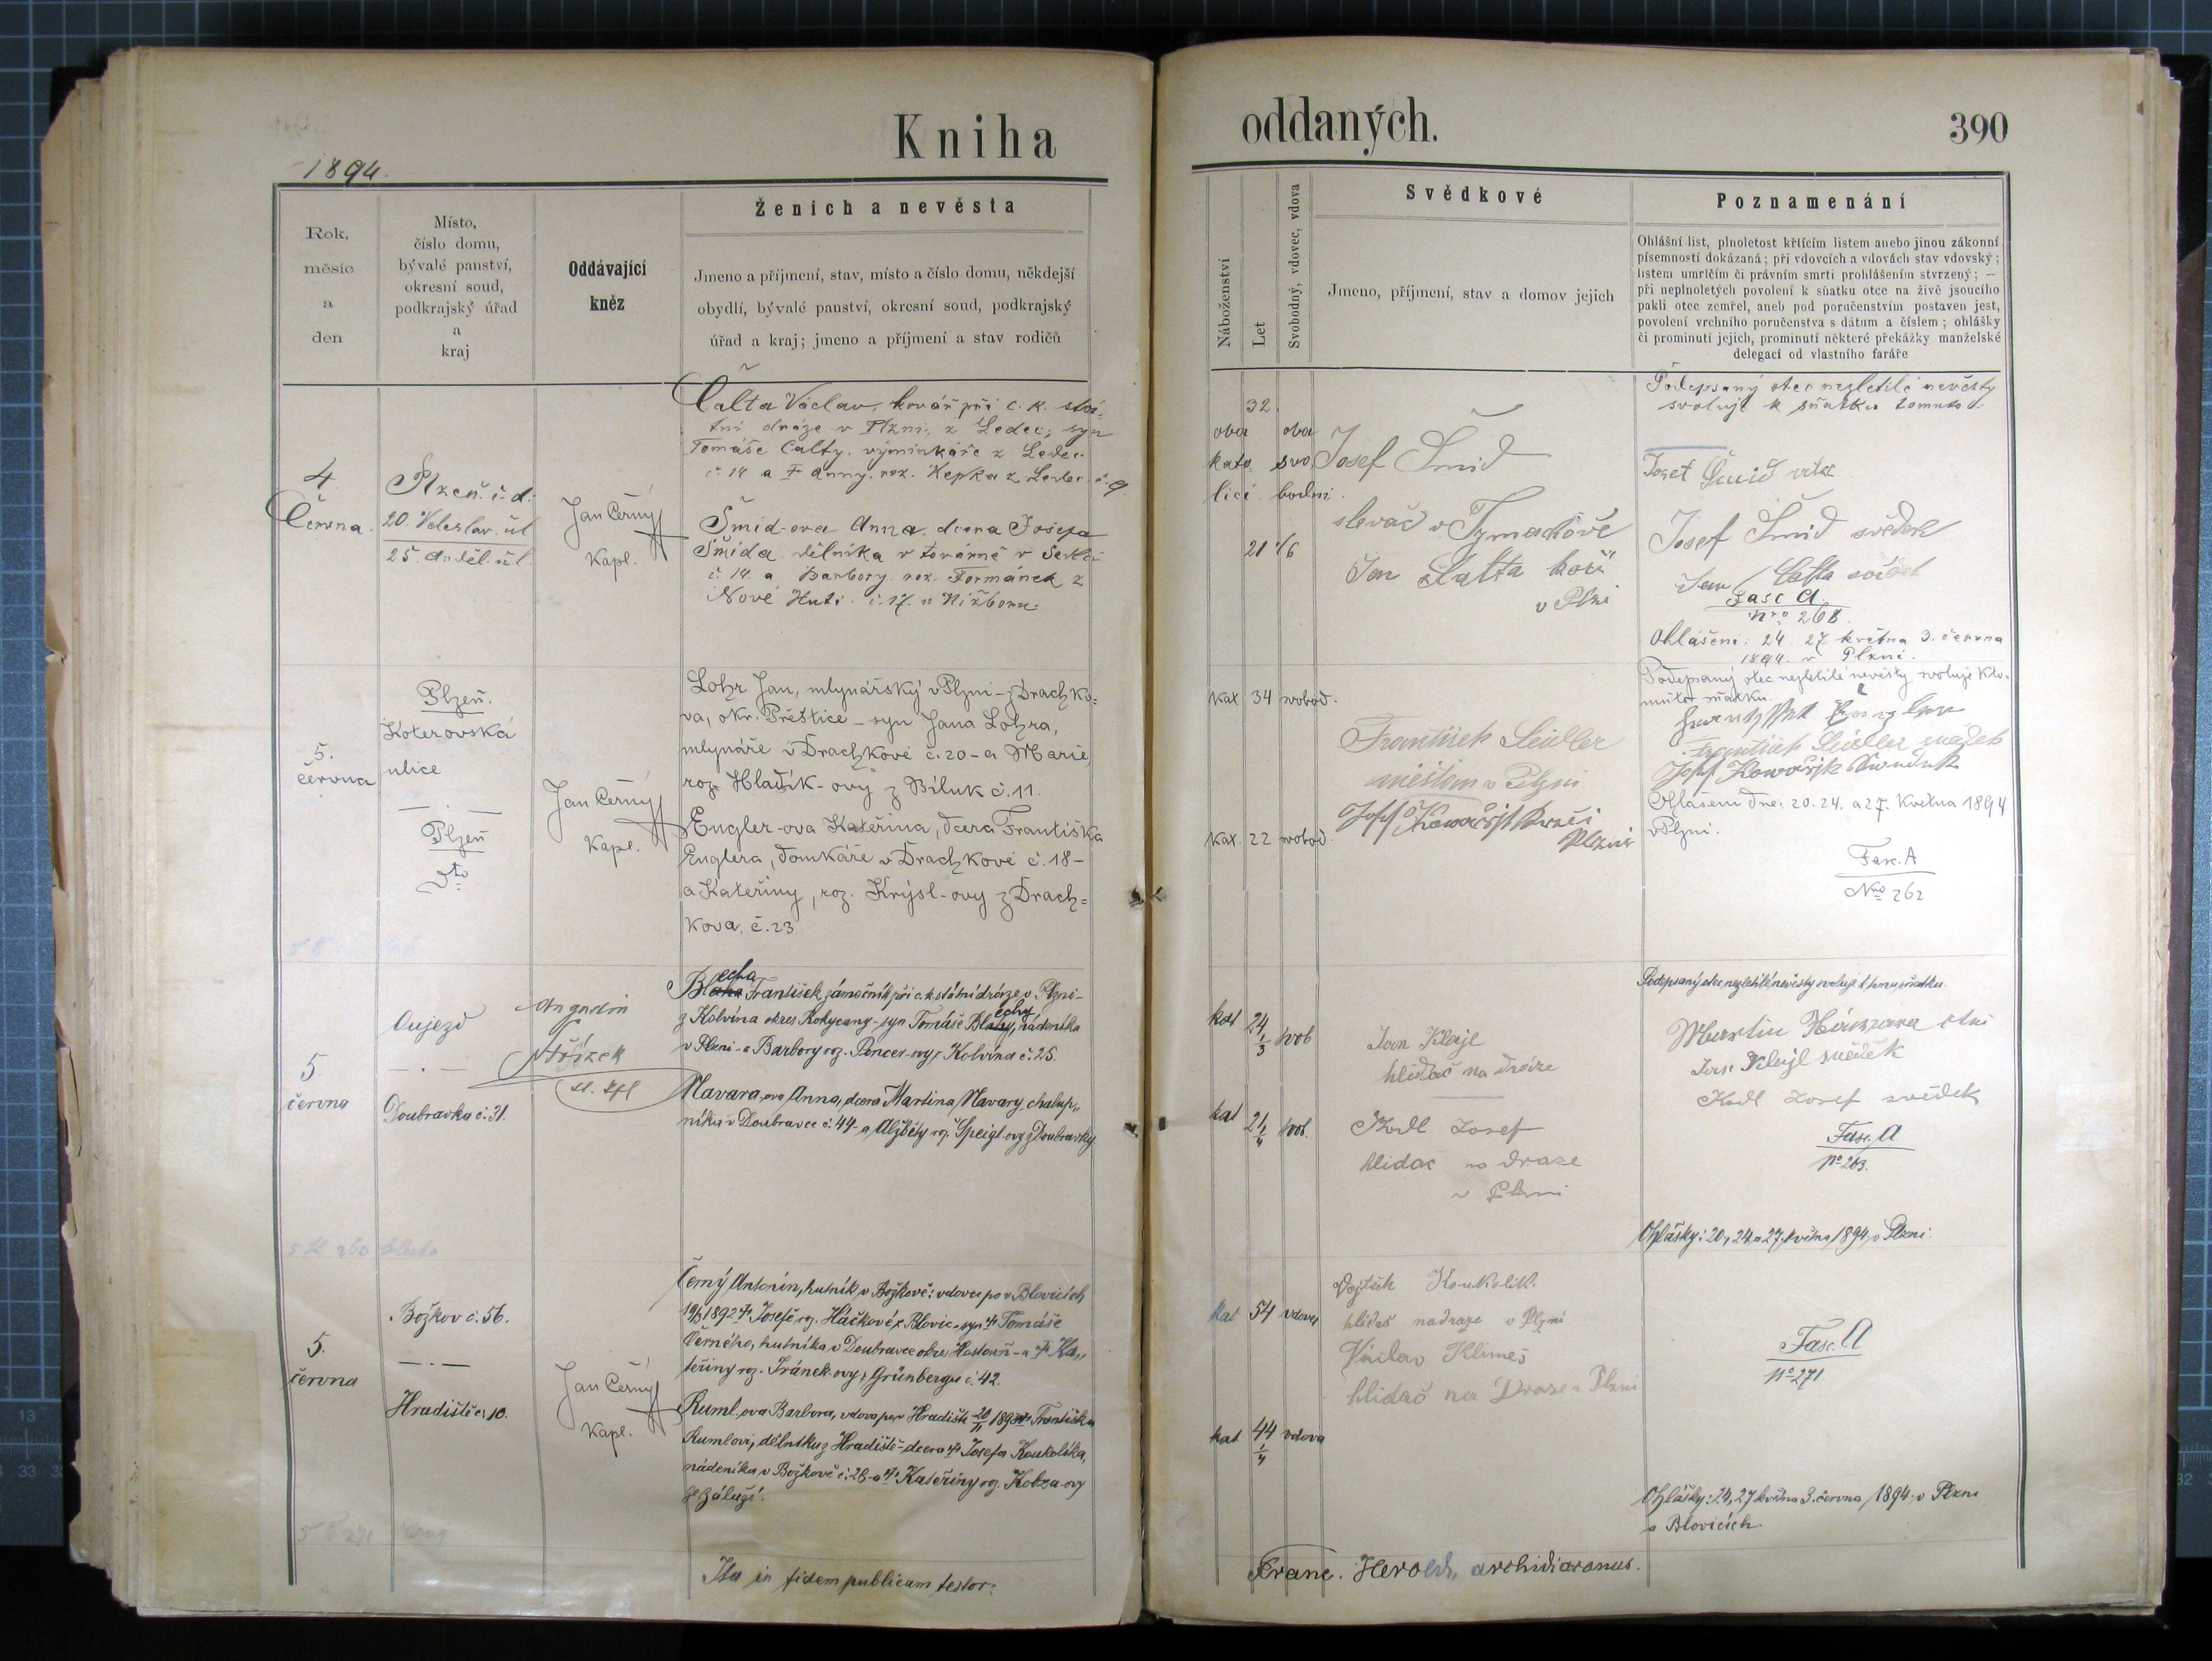 Kniha
1894.
Rok,
měsíc
a
den
Místo,
číslo domu,
bývalé panství,
okresní soud,
podkrajský úřad
a
kraj
Oddávající
kněz
Ženich a nevěsta
Jmeno a příjmení, stav, místo a číslo domu, někdejší
obydlí, bývalé panství, okresní soud, podkrajský
úřad a kraj; jmeno a příjmení a stav rodičů
4
Června.
Plzeň. č. d.
20. Veleslav. úl
25. děl. úl.
Jan Černý
Kapl.
Čalta Václav, kovář při c. k. stát-
ní dráze v Plzni, z Ledec, syn
Tomáše Calty, výminkáře z Ledec
č. 14 a Anny, roz. Kepka z Ledec č. 9
Šmíd-ova Anna, dcera Josefa
Šmída, dělníka v továrně v Sedlci
č. 14. a Barbory, roz. Formánek z
Nové Huti č. 17. u Nižboru.
5.
června
Plzeň.
Koterovská
ulice
Plzeň
dto
Jan Černý
Kapl.
Lohr Jan, mlynářský v Plzni - z Drachko-
va, okr. Přeštice - syn Jana Lohra,
mlynáře v Drachkově č. 20 - a Marie,
roz. Hladík-ovy z Biluk č. 11.
Engler-ova Kateřina, dcera Františka
Englera, domkáře v Drachkově č. 18 -
a Kateřiny, roz. Krýsl-ovy z Drach-
kova, č. 23
5.
června
Oujezd
Doubravka č. 31.
Stožek
echa
Blaha František, zámečník při c. k. státní dráze v Plzni -
z Kolvína okres Rokycany - syn Tomáše Blahy, nádeníka
echy
v Plzni - a Barbory roz. Poncer-ovy z Kolvína č. 25.
Navara-ova Anna, dcera Martina Navary, chalup-
níka v Doubravce č. 44 - a Alžběty roz. Speigl-ovy z Doubravky
5.
června
Božkov č. 56.
Hradiště č. 10.
Jan Černý
Kapl.
Černý Antonín, hutník v Božkově: vdovec po v Blovicích
1892 † Josefě roz. Háčkové z Blovic - syn † Tomáše
Černého, hutníka v Doubravce okres Hostouň - a † Ka-
teřiny roz. Fránek-ovy z Grünbergu č. 42.
Ruml-ova Barbora, vdova po v Hradišti 20/11 1893 † Františku
Rumlovi, dělníku z Hradiště - dcera † Josefa Koukolíka,
nádeníka v Božkově č. 28 - a † Kateřiny roz. Kobza-ovy
ze Záluží.
Ita in fidem publicam testor:
oddaných.
390
Náboženství
Let
Svobodný, vdovec, vdova
Svědkové
Jmeno, příjmení, stav a domov jejich
Poznamenání
Ohlášní list, plnoletost křtícím listem anebo jinou zákonní
písemností dokázaná; při vdovcích a vdovách stav vdovský;
listem umrlčím či právním smrti prohlášením stvrzený; —
při neplnoletých povolení k sňatku otce na živě jsoucího
pakli otec zemřel, aneb pod poručenstvím postaven jest,
povolení vrchního poručenstva s dátum a číslem; ohlášky
či prominutí jejich, prominutí některé překážky manželské
delegací od vlastního faráře
32.
oba oba
kato svo
lici bodni.
21 1/6
Josef Šmíd
slevač v
Jan Čalta kočí
v Plzni
Podepsaný otec nezletilé nevěsty
svoluje k sňatku tomuto
Josef Šmíd otec
Josef Šmíd svědek
Jan Čalta svědek
Fasc A.
Nro 268.
Ohlášení: 24. 27 května 3. června
1894. v Plzni.
kat 34 svobod.
kat. 22 svobod.
František Seidler
měšťan v Plzni
Podepsaný otec nezletilé nevěsty svoluje k to-
muto sňatku.
František Seidler svědek
Ohlášení dne: 20. 24. a 27. května 1894
v Plzni.
Fasc. A
Nro 262
kat 24 1/3 svob
kat 21 1/4 svob.
Jan Klajl
hlídač na dráze
Kodl Josef
hlidac na draze
v Plzni
Podepsaný otec nezletilé nevěsty svoluje k tomu sňatku.
Jan Klajl svědek
Kodl Josef svědek
Fasc. A
No 263.
Ohlášky: 20, 24 a 27. května 1894 v Plzni.
kat 54 vdovec
kat 44 1/4 vdova
Vojtěch Koukolík
hlídač nadraze v Plzni
Václav Klimeš
hlídač na Draze v Plzni
Fasc. A
No 271
Ohlášky: 24, 27 května 3. června 1894 v Plzni
a Blovicích.
Franc. Herold, archidiaconus.